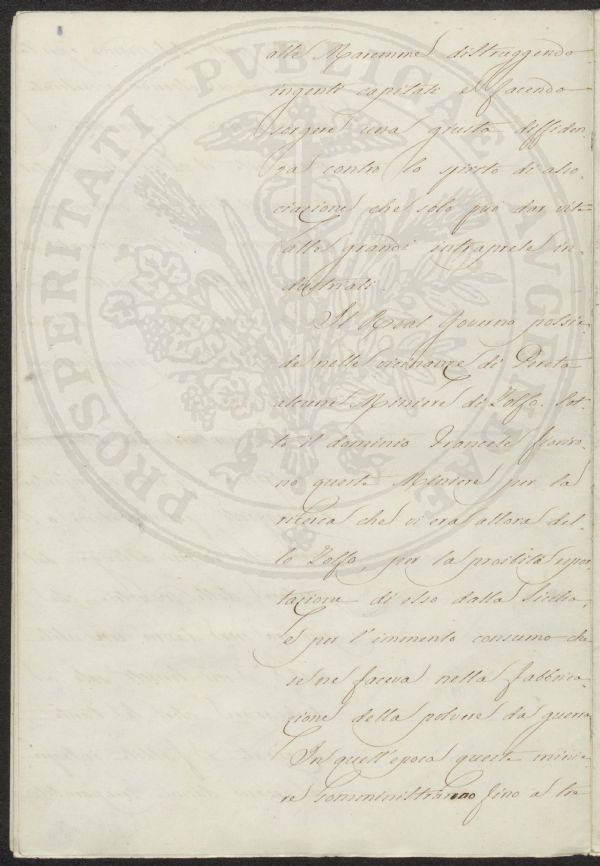 alle Maremme distruggendo
ingenti capitali e facendo
sorgere una giusta diffiden-
za contro lo spirito di asso-
ciazione che solo può dar vita
alle grandi intraprese in-
dustriali.
Il Real Governo possie-
de nelle vicinanze di Pereta
alcune Miniere di Zolfo. Sot-
to il dominio Francese furo-
no queste Miniere per la
ricerca che vi era allora del-
lo Zolfo, per la proibita espor-
tazione di esso dalla Sicilia,
e per l'immenso consumo che
se ne faceva nella fabbrica-
zione della polvere da guerra
In quell'epoca queste minie-
re somministrarono fino a tre
PROSPERITATI PVBLICAE AVGENDAE